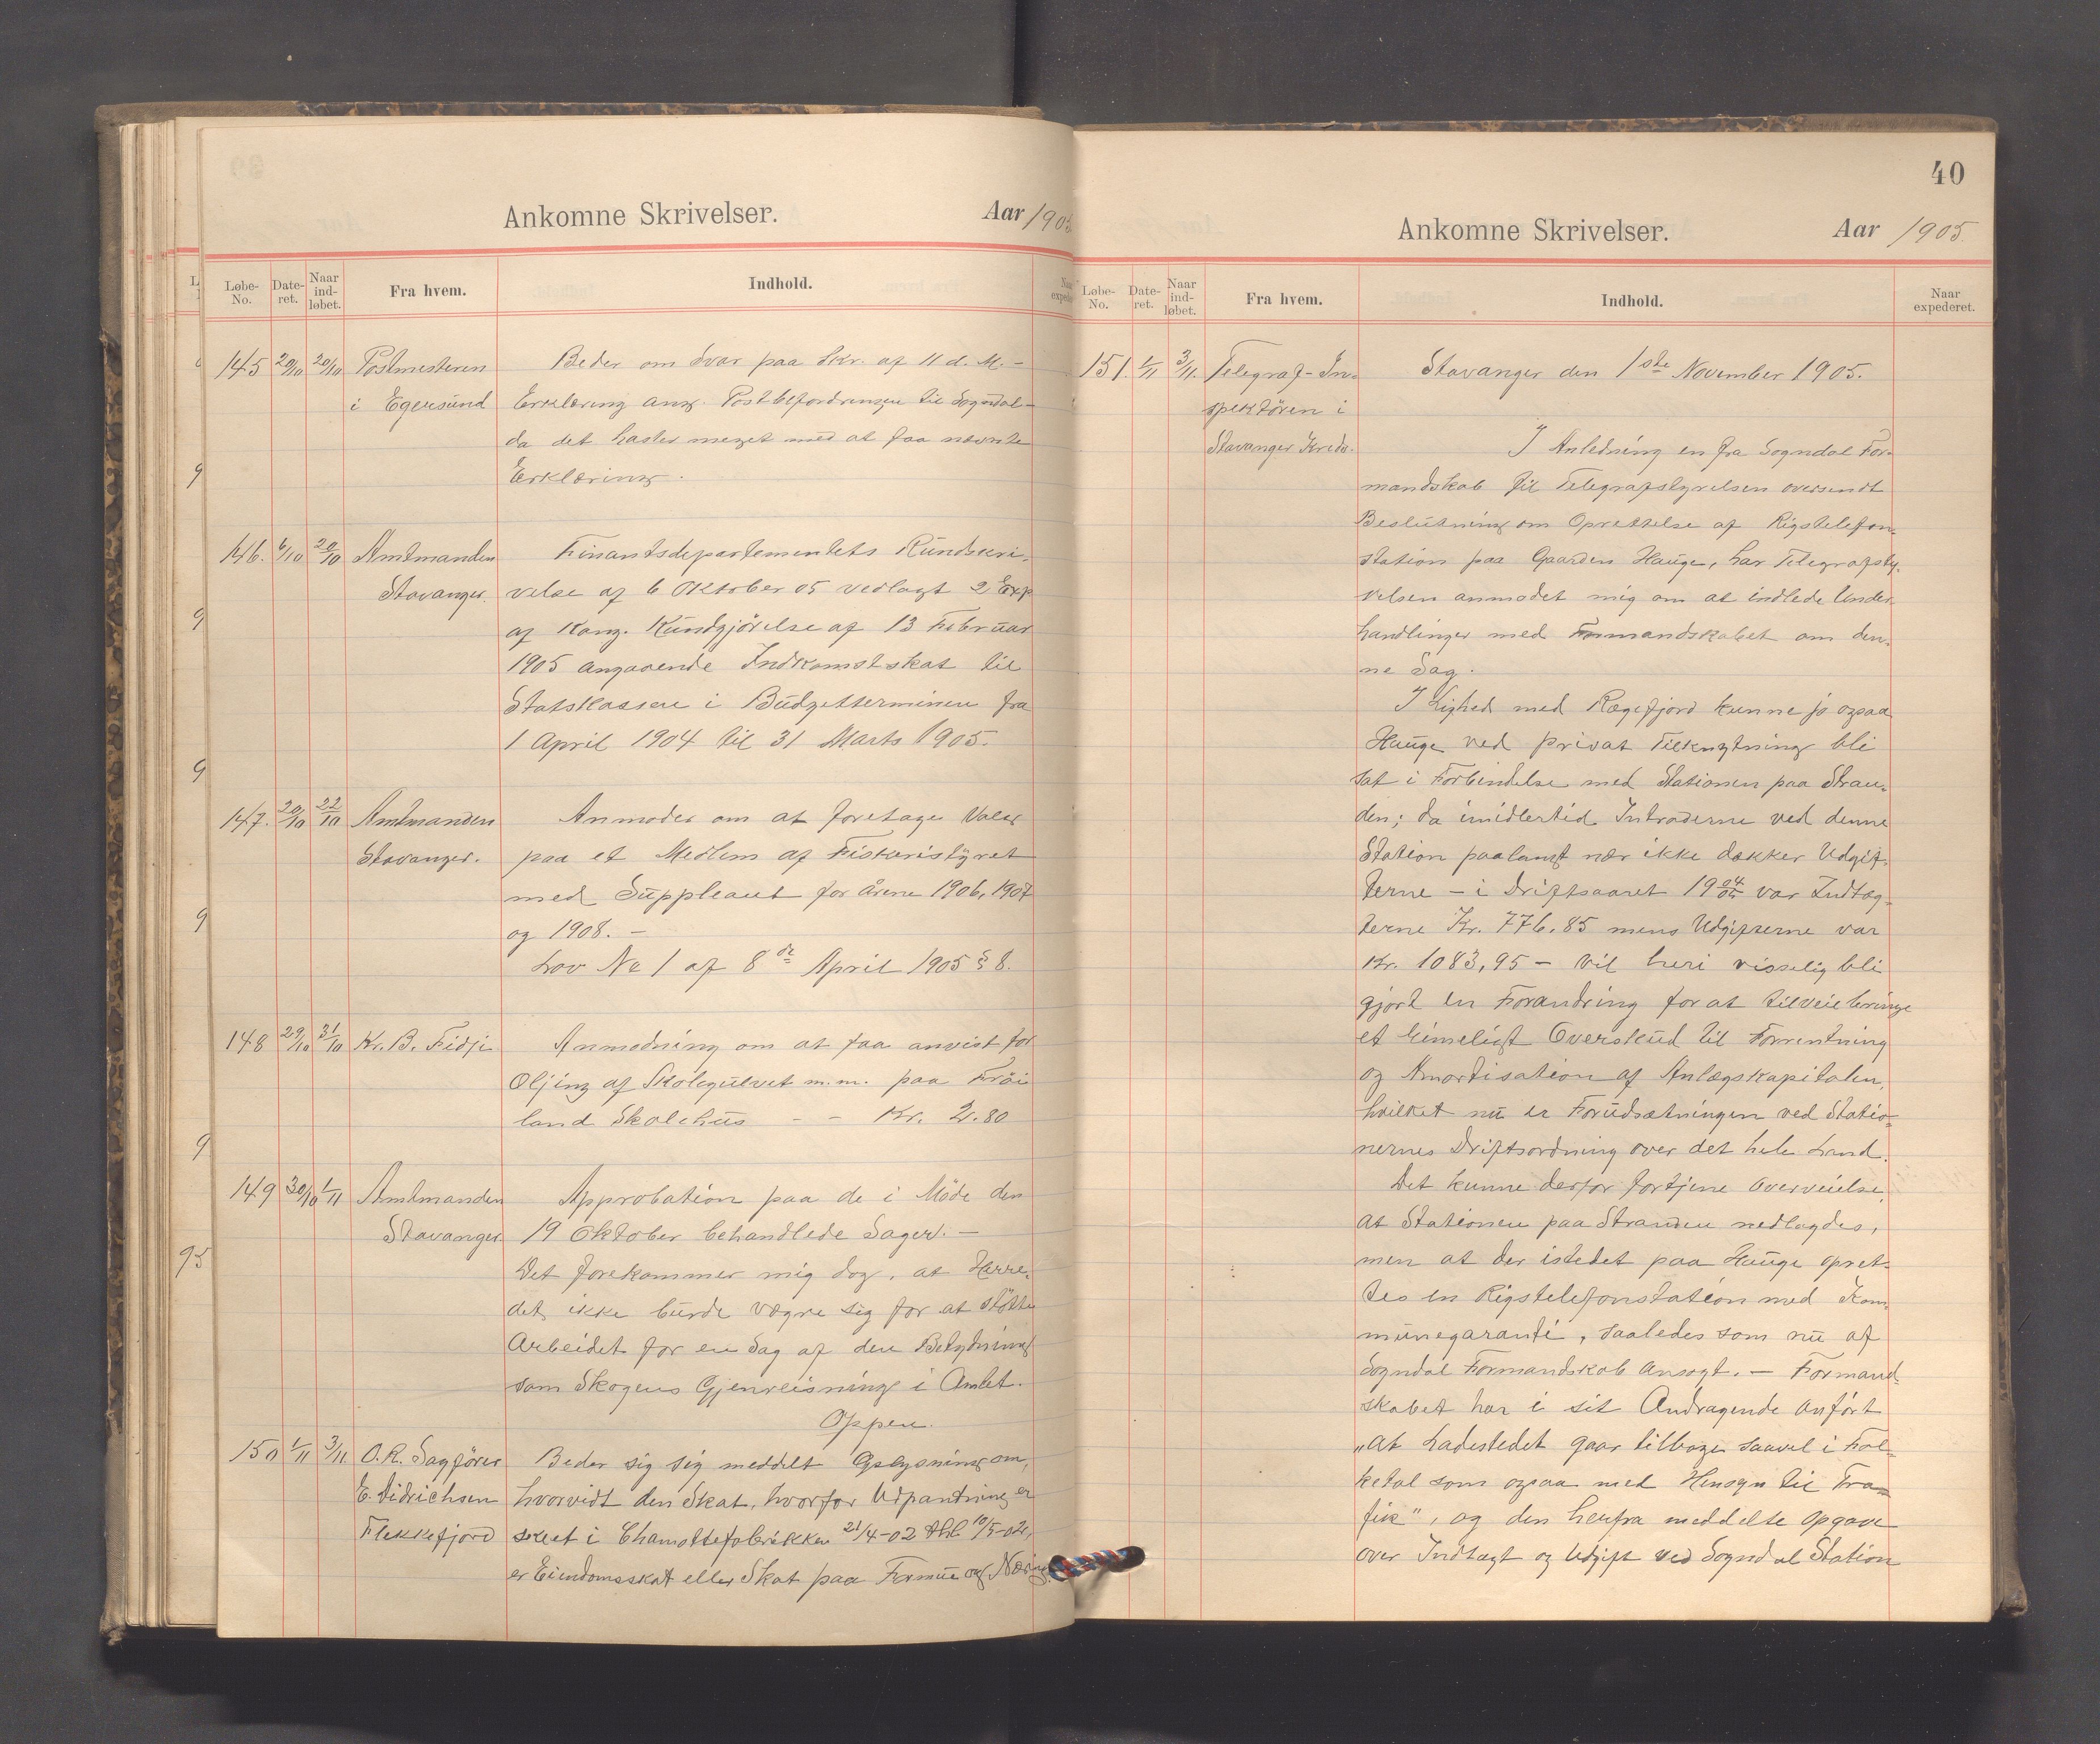 Ankomne Skrivelser. Aar 1905
Løbe-No. Date-ret. Naar ind-løbet. Fra hvem. Indhold. Naar expede
145 20/10 20/10 Postmesteren Beder om Svar paa Skr. af 11 d. M. –
i Egersund Erklæring ang. Postbefordringen til Sogndal –
da det haster meget med at faa nævnte
Erklæring.
146. 6/10 20/10 Amtmanden Finantsdepartementets Rundskri-
Stavanger. velse af 6 Oktober 05 vedlagt 2 Exp
af Kong. Kundgjörelse af 13 Februar
1905 angaaende Indkomstskat til
Statskassen i Budgetterminen fra
1 April 1904 til 31 Marts 1905.
147. 20/10 22/10 Amtmanden Anmoder om at foretage Valg
Stavanger. paa et Medlem af Fiskeristyret
med Suppleant for årene 1906, 1907
og 1908. –
Lov No 1 af 8de April 1905 § 8.
148 29/10 31/10 Kr. B. Fidji Anmodning om at faa anvist for
Oljing af Skolegulvet m.m. paa Fröi
land Skolehus – – Kr. 2.80
149 30/10 1/11 Amtmanden Approbation paa de i Möde den
Stavanger 19 Oktober behandlede Sager. –
Det forekommer mig dog, at Herre-
det ikke burde vægre sig for at støtte
Arbeidet for en Sag af den Betydning
som Skogens Gjenreisning i Amtet.
Oppen.
150 1/11 3/11 O.R. Sagförer Beder sig sig meddelt Oplysning om,
E. Didrichsen hvorvidt den Skat, hvorfor Udpantning er
Flekkefjord skeet i Chamottefabrikken 21/4-02 10/5-02,
er Eiendomsskat eller Skat paa Formue og Næring.
40
Ankomne Skrivelser. Aar 1905.
Løbe-No. Date-ret. Naar ind-løbet. Fra hvem. Indhold. Naar expederet.
151. 1/11 3/11. Telegraf-In- Stavanger den 1ste November 1905.
spektören i
Stavanger Kreds. I Anledning en fra Sogndal For-
mandskab til Telegrafstyrelsen oversendt
Beslutning om Oprettelse af Rigstelefon-
station paa Gaarden Hauge, har Telegrafsty-
relsen anmodet mig om at indlede Under-
handlinger med Formandskabet om den-
ne Sag.
I Lighed med Rægefjord kunne jo ogsaa
Hauge ved privat Tilknytning bli
sat i Forbindelse med Stationen paa Stran-
den; da imidlertid Intraderne ved denne
Station paalangt nær ikke dækker Udgif-
terne – i Driftsaaret 1904/05 var Indtæg-
terne Kr. 776.85 mens Udgifterne var
Kr. 1083,95 – vil heri visselig bli
gjort en Forandring for at tilveiebringe
et rimeligt Overskud til Forrentning
og Amortisation af Anlægskapitalen,
hvilket nu er Forudsætningen ved Statio-
nernes Driftsordning over det hele Land.
Det kunne derfor fortjene Overveielse,
at Stationen paa Stranden nedlagdes,
men at der istedet paa Hauge opret-
tes en Rigstelefonstation med Kom-
munegaranti, saaledes som nu af
Sogndal Formandskab ansøgt. – Formand-
skabet har i sit Andragende anfört
„at Ladestedet gaar tilbage saavel i Fol-
ketal som ogsaa med Hensyn til Tra-
fik", og den herfra meddelte Opgave
over Indtægt og Udgift ved Sogndal Station